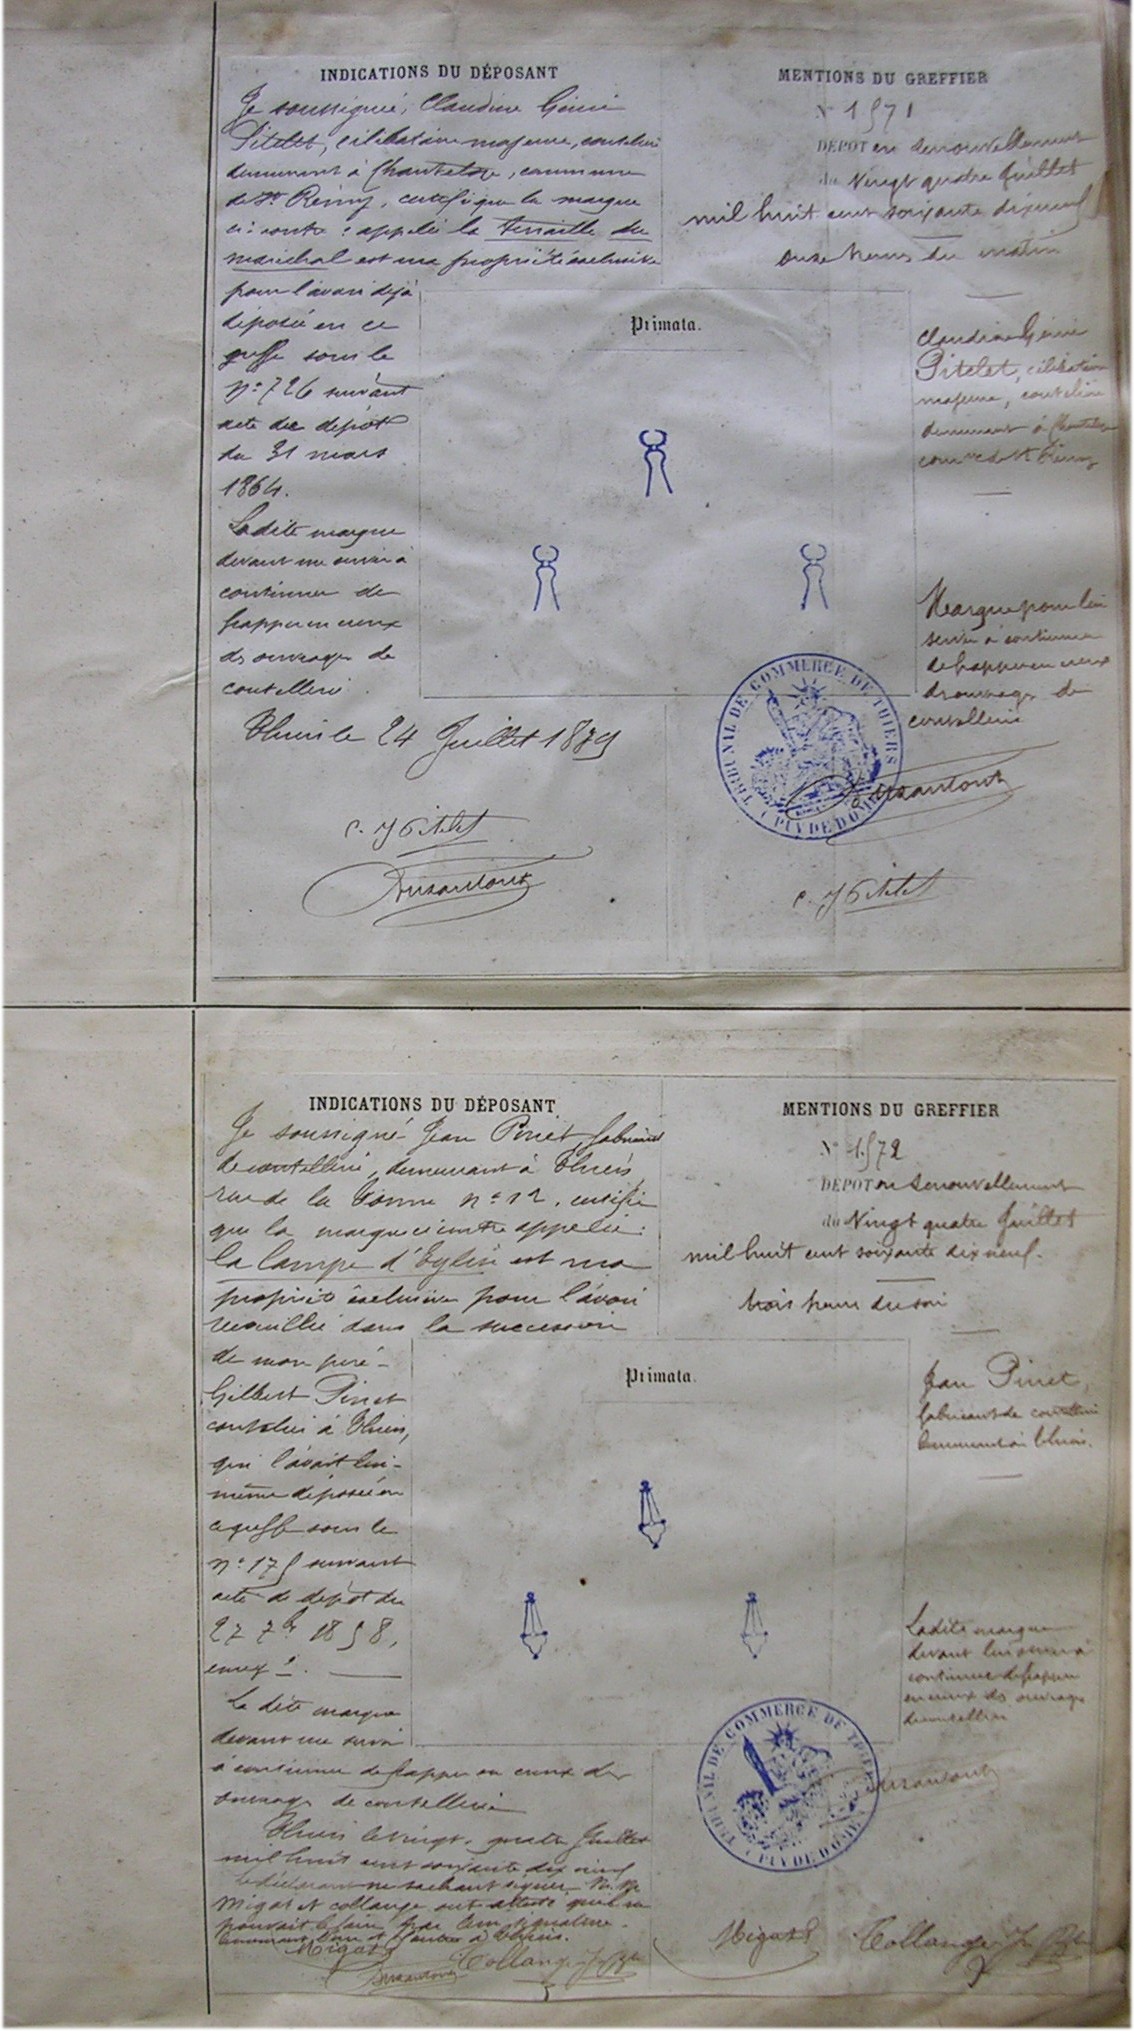 INDICATIONS DU DÉPOSANT
Je soussignée, Claudine Génie
Pitelet, célibataire majeure, coutelière
demeurant à Chanteloze, commune
de St Rémy, certifie que la marque
ci-contre : appelée la tenaille du
maréchal est ma propriété exclusive
pour l'avoir déjà
déposée en ce
greffe sous le
No 726 suivant
acte de dépôt
du 31 mars
1864.
Ladite marque
devant me servir à
continuer de
frapper en creux
des ouvrages de
coutellerie.
Thiers le 24 Juillet 1879
Pitelet
MENTIONS DU GREFFIER
No 1571
DÉPOT en renouvellement
du Vingt quatre Juillet
mil huit cent soixante dix neuf
onze heures du matin
Primata.
Claudine Génie
Pitelet, célibataire
majeure, coutelière
demeurant à Chanteloze
comne de St Rémy
Marque pour lui
servir à continuer
de frapper en creux
des ouvrages de
coutellerie
TRIBUNAL DE COMMERCE DE THIERS
(PUY DE DOME)
Pitelet
INDICATIONS DU DÉPOSANT
Je soussigné Jean Pinet, fabricant
de coutellerie, demeurant à Thiers
rue de la No 12, certifie
que la marque ci contre appelée :
la lampe d'Eglise est ma
propriété exclusive pour l'avoir
recueillie dans la succession
de mon père
Gilbert Pinet
coutelier à Thiers,
qui l'avait lui-
même déposée en
ce greffe sous le
No 175 suivant
acte de dépôt du
27 7bre 1858,
La dite marque
devant me servir
à continuer de frapper en creux des
ouvrages de coutellerie
Thiers le vingt-quatre Juillet
mil huit cent soixante dix neuf
Le déclarant ne sachant signer M. M.
Migat et Collange ont attesté qu'il ne
pouvait le faire par leur signature.
demeurant l'un et l'autre à Thiers.
Migat Collange
MENTIONS DU GREFFIER
No 1572
DÉPOT en renouvellement
du Vingt quatre Juillet
mil huit cent soixante dix neuf.
trois heures du soir
Primata.
Jean Pinet,
fabricant de coutellerie
demeurant à Thiers.
Ladite marque
devant lui servir à
continuer de frapper
en creux des ouvrages
de coutellerie
TRIBUNAL DE COMMERCE DE THIERS
(PUY DE DOME)
Migat Collange